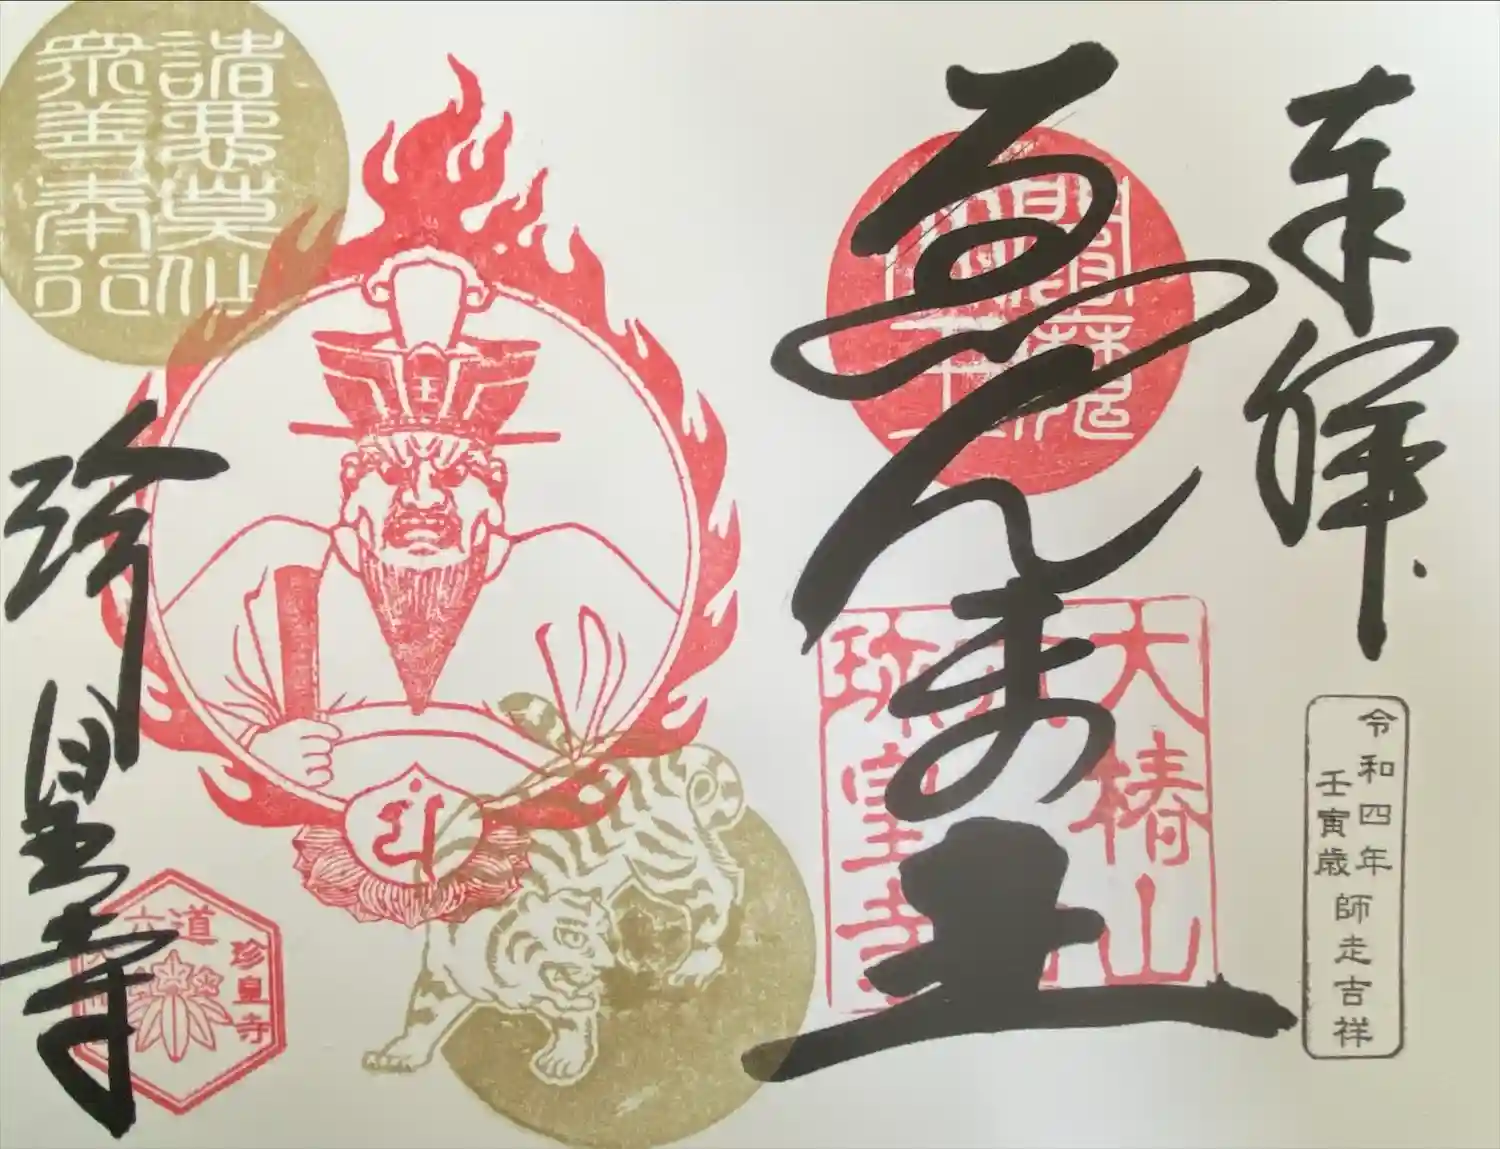 奉拝
令和四年
壬寅歳
師走吉祥
ゑんま王
大椿山
珎皇寺
諸悪莫作
衆善奉行
王
珍皇寺
六道
珍皇寺